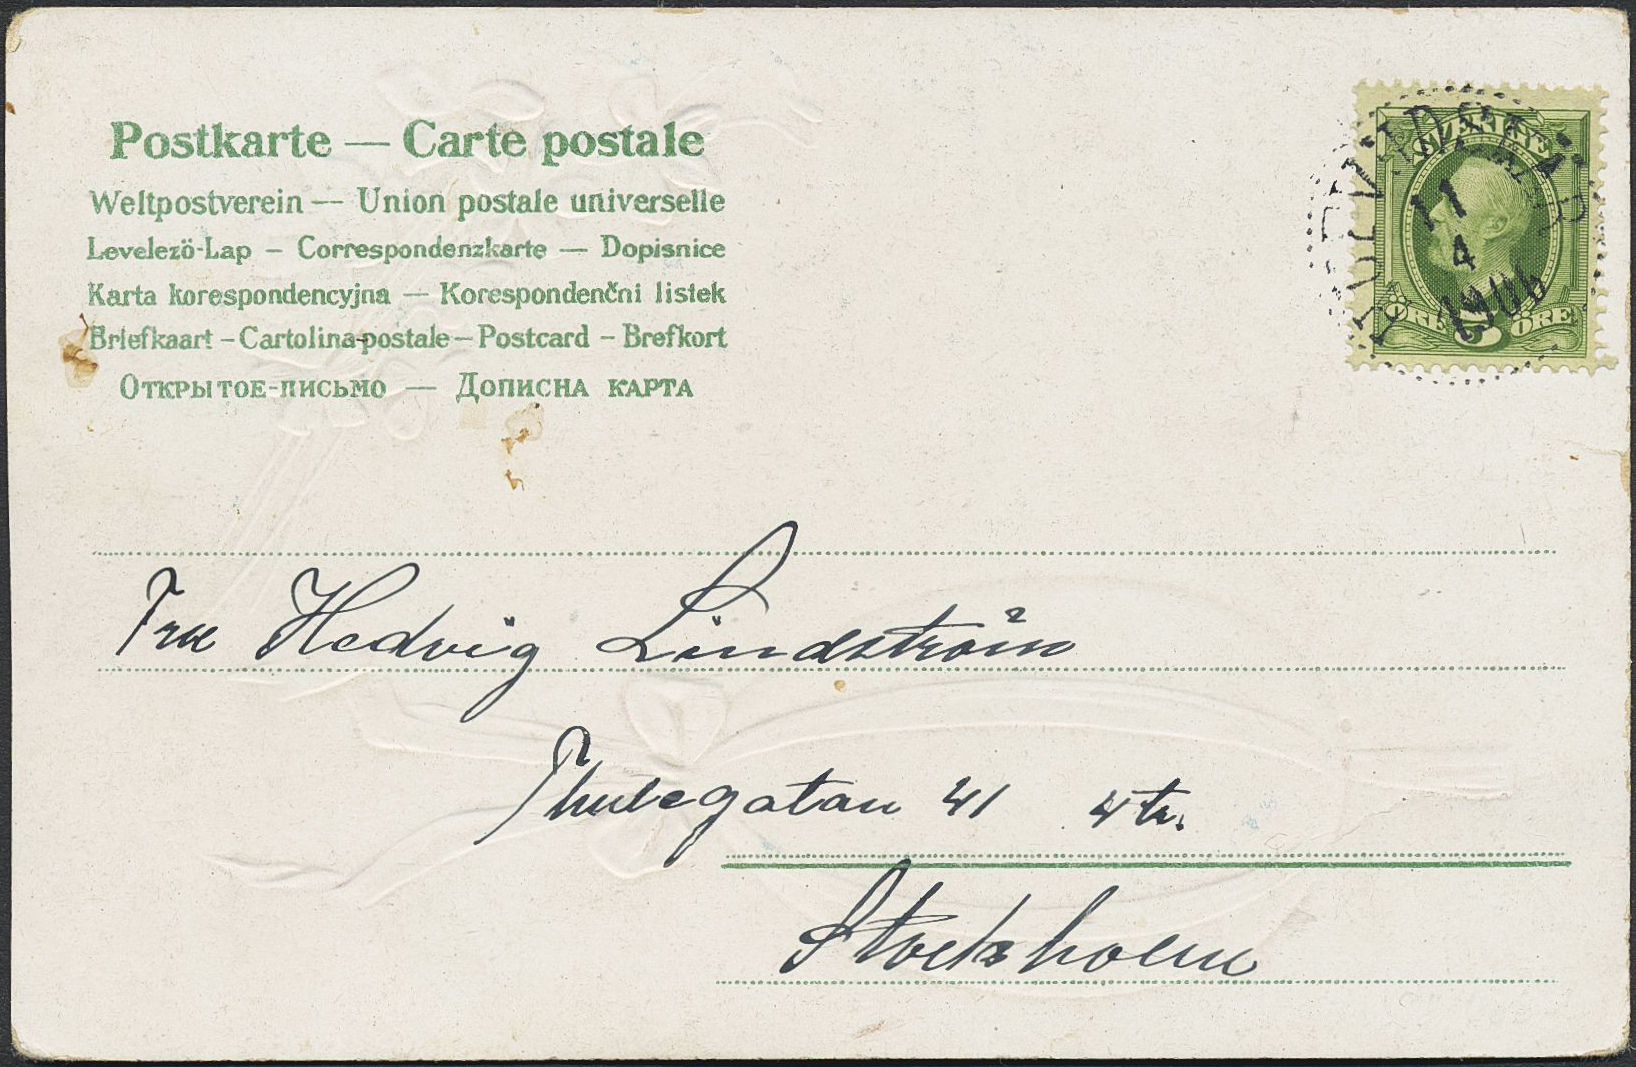 Postkarte — Carte postale
Weltpostverein — Union postale universelle
Levelezö-Lap – Correspondenzkarte — Dopisnice
Karta korespondencyjna — Korespondenčni listek
Briefkaart – Cartolina-postale – Postcard – Brefkort
Открытое-письмо — Дописна карта
SVERIGE
11
4
1906
5
ÖRE ÖRE
Fru Hedvig Lindström
Thulegatan 41 4 tr.
Stockholm